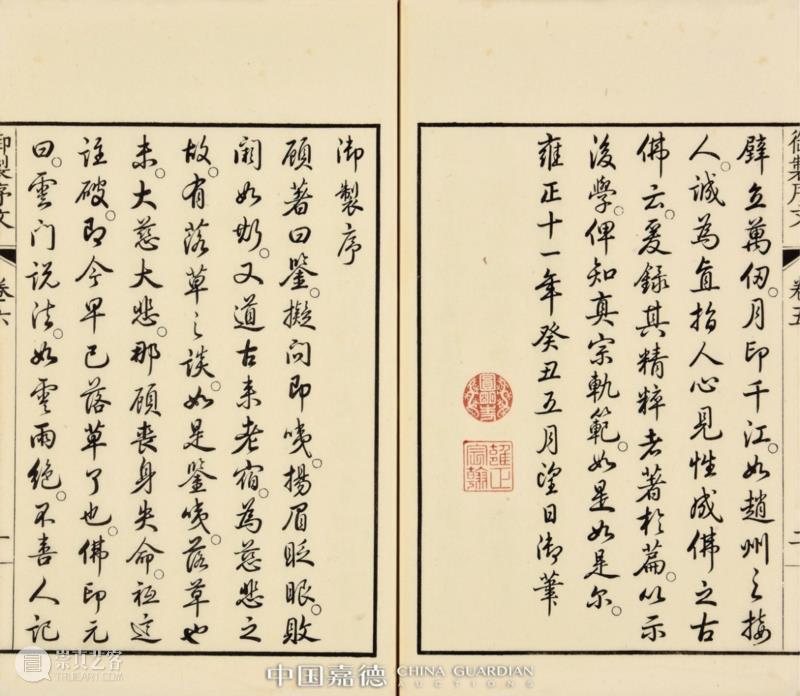 御製序文 卷五 二
壁立萬仞。月印千江。如趙州之接
人。誠為直指人心見性成佛之古
佛云。爰錄其精粹者著於篇。以示
後學。俾知真宗軌範。如是如是尔。
雍正十一年癸丑五月望日御筆
雍正宸翰
御製序
顧著曰鑒。擬問即咦。揚眉眨眼。敗
闕如斯。又道古來老宿。為慈悲之
故。有落草之談。如是鑒咦。落草也
未。大慈大悲。那顧喪身失命。祇這
註破。即今早已落草了也。佛印元
曰。雲門說法。如雲雨絕。不喜人記
御製序文 卷六 一
崇真艺客
TRUEART.COM
中国嘉德 CHINA GUARDIAN
AUCTIONS